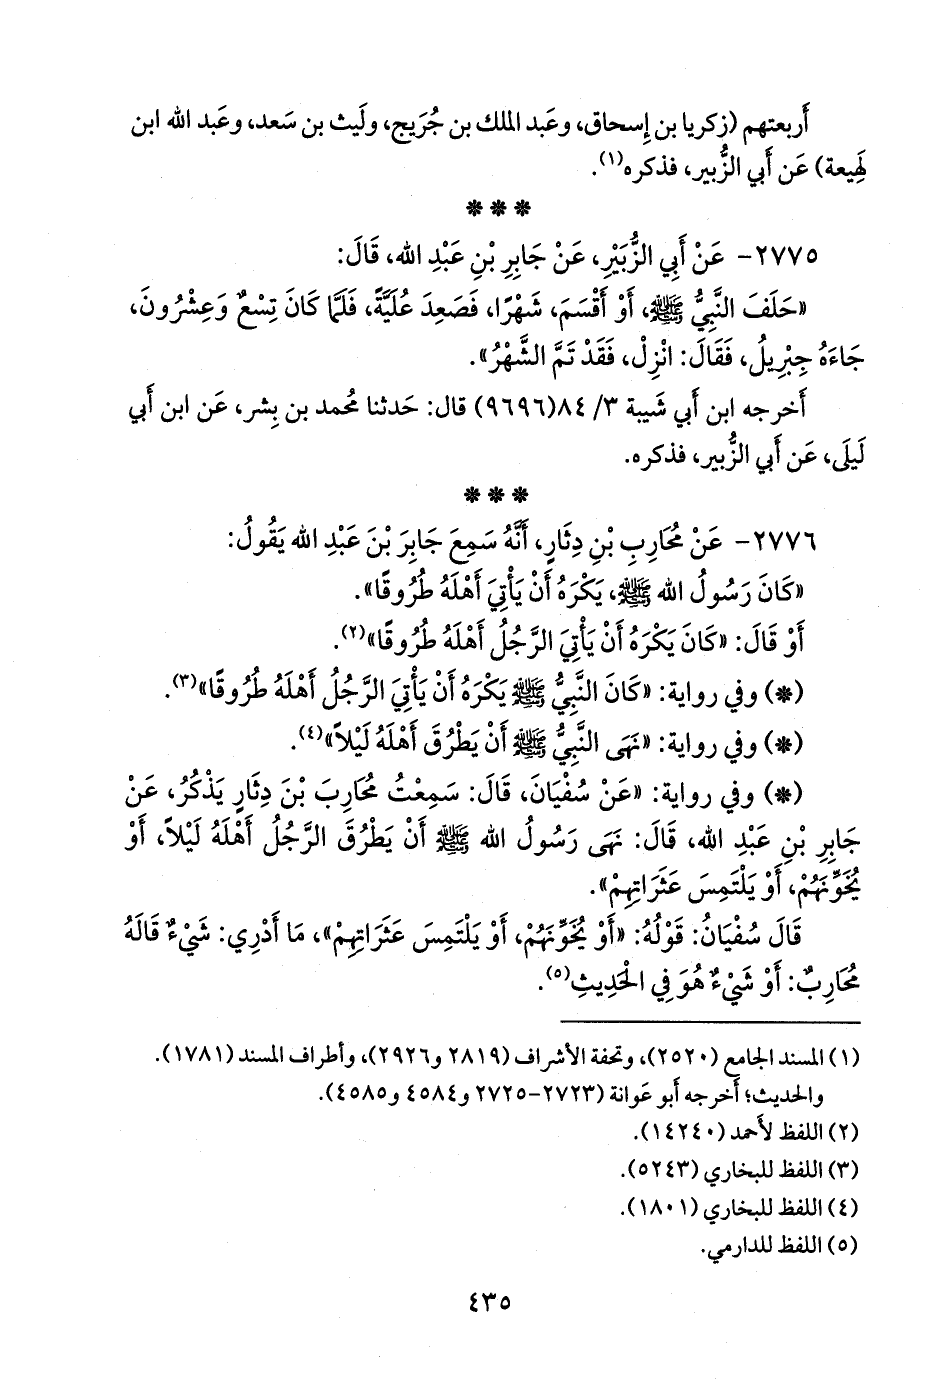 أَربعتهم (زكريا بن إِسحاق، وعَبد الملك بن جُرَيج، ولَيث بن سَعد، وعَبد الله ابن
لَهِيعة) عَن أَبي الزُّبير، فذكره(١).
* * *
٢٧٧٥- عَنْ أَبِي الزُّبَيْرِ، عَنْ جَابِرِ بْنِ عَبْدِ الله، قَالَ:
«حَلَفَ النَّبِيُّ ﷺ، أَوْ أَقْسَمَ، شَهْرًا، فَصَعِدَ عُلَيَّةً، فَلَمَّا كَانَ تِسْعٌ وَعِشْرُونَ،
جَاءَهُ جِبْرِيلُ، فَقَالَ: انْزِلْ، فَقَدْ تَمَّ الشَّهْرُ».
أَخرجه ابن أَبي شَيبة ٣/ ٨٤(٩٦٩٦) قال: حَدثنا مُحمد بن بِشر، عَن ابن أَبي
لَيلَى، عَن أَبي الزُّبير، فذكره.
* * *
٢٧٧٦- عَنْ مُحَارِبِ بْنِ دِثَارٍ، أَنَّهُ سَمِعَ جَابِرَ بْنَ عَبْدِ الله يَقُولُ:
«كَانَ رَسُولُ الله ﷺ، يَكْرَهُ أَنْ يَأْتِيَ أَهْلَهُ طُرُوقًا».
أَوْ قَالَ: «كَانَ يَكْرَهُ أَنْ يَأْتِيَ الرَّجُلُ أَهْلَهُ طُرُوقًا»(٢).
(*) وفي رواية: «كَانَ النَّبِيُّ ﷺ يَكْرَهُ أَنْ يَأْتِيَ الرَّجُلُ أَهْلَهُ طُرُوقًا»(٣).
(*) وفي رواية: «نَهَى النَّبِيُّ ﷺ أَنْ يَطْرُقَ أَهْلَهُ لَيْلاً»(٤).
(*) وفي رواية: «عَنْ سُفْيَانَ، قَالَ: سَمِعْتُ مُحَارِبَ بْنَ دِثَارٍ يَذْكُرُ، عَنْ
جَابِرِ بْنِ عَبْدِ الله، قَالَ: نَهَى رَسُولُ الله ﷺ أَنْ يَطْرُقَ الرَّجُلُ أَهْلَهُ لَيْلاً، أَوْ
يُخَوِّنَهُمْ، أَوْ يَلْتَمِسَ عَثَرَاتِهِمْ».
قَالَ سُفْيَانُ: قَوْلُهُ: «أَوْ يُخَوِّنَهُمْ، أَوْ يَلْتَمِسَ عَثَرَاتِهِمْ»، مَا أَدْرِي: شَيْءٌ قَالَهُ
مُحَارِبٌ: أَوْ شَيْءٌ هُوَ فِي الْحَدِيثِ(٥).
(١) المسند الجامع (٢٥٢٠)، وتحفة الأشراف (٢٨١٩ و٢٩٢٦)، وأطراف المسند (١٧٨١).
والحديث؛ أَخرجه أَبو عَوانة (٢٧٢٣-٢٧٢٥ و٤٥٨٤ و٤٥٨٥).
(٢) اللفظ لأَحمد (١٤٢٤٠).
(٣) اللفظ للبخاري (٥٢٤٣).
(٤) اللفظ للبخاري (١٨٠١).
(٥) اللفظ للدارمي.
٤٣٥